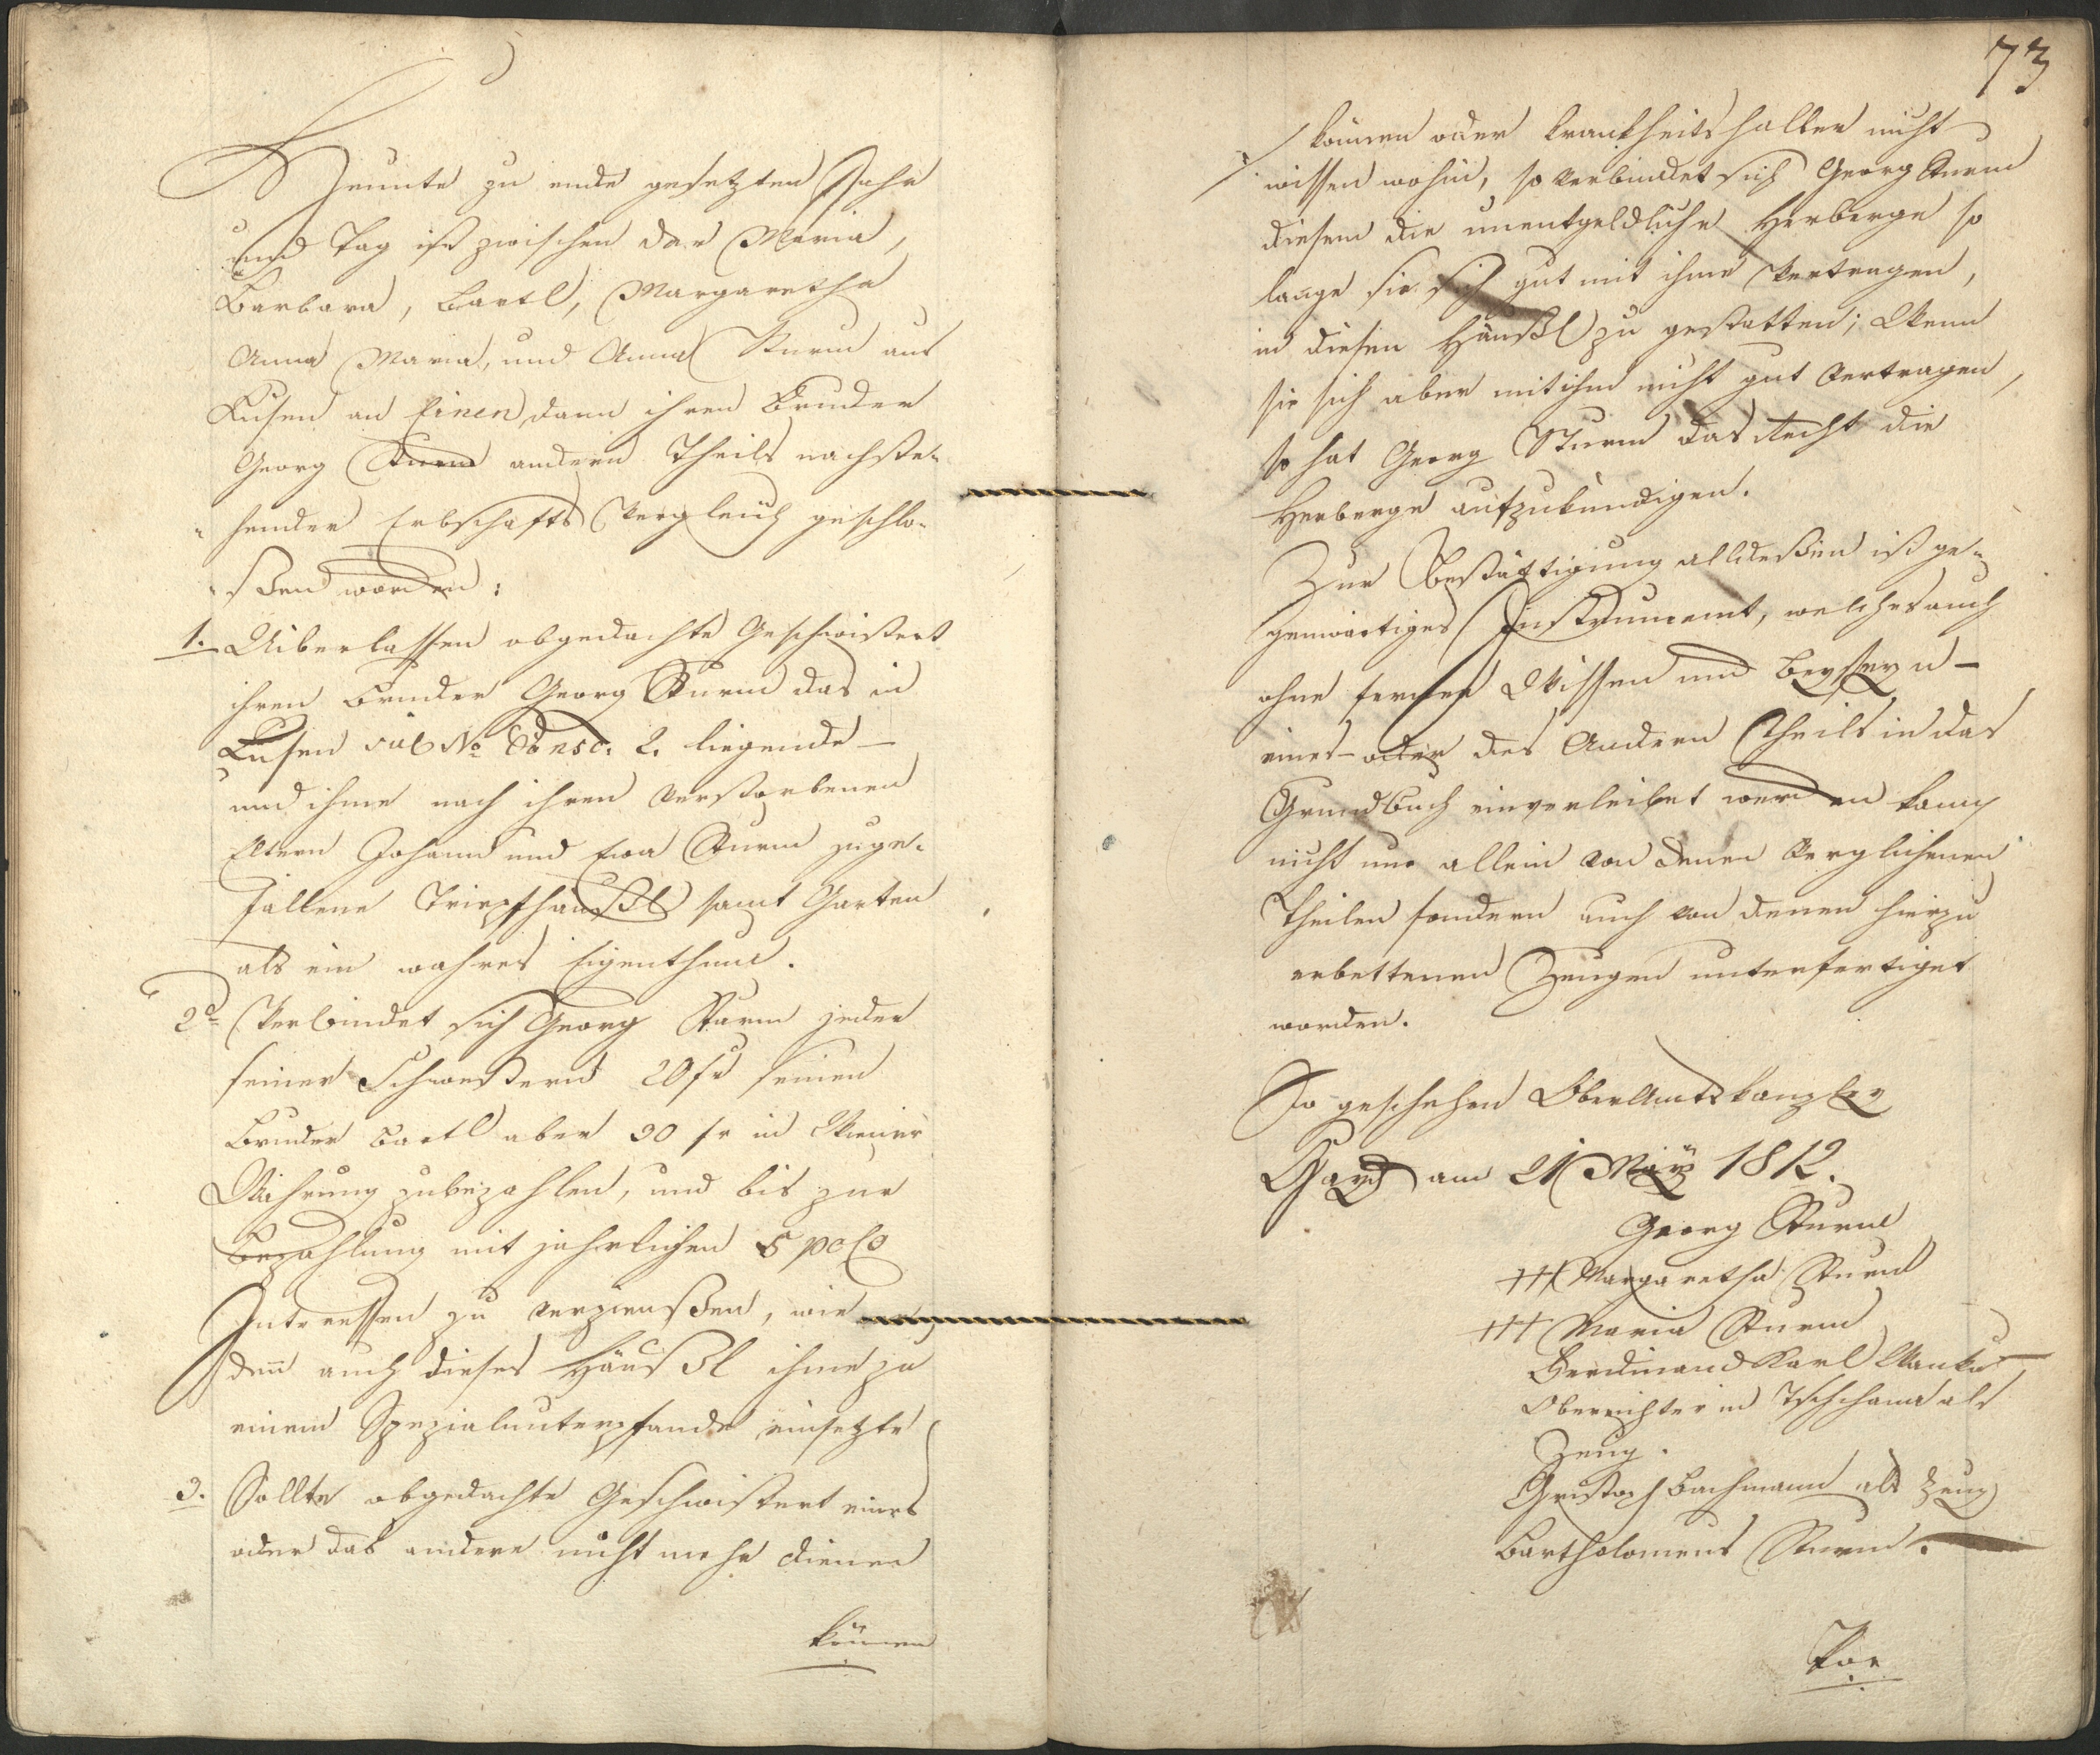 Heunte zu ende gesetzten Jahr
und Tag ist zwischen der Maria,
Barbara, Bartl, Margaretha
Anna Maria, und Anna Sturm aus
Kusen an Einen, dann ihren Bruder
Georg Sturm andern Theils nachste-
hender Erbschafts Vergleich geschlo-
ßen worden:
1. Uiberlassen obgedachte Geschwistert
ihren Bruder Georg Sturm das in
Kusen sub No Consc. 2. liegende –
und ihme nach ihren verstorbenen
Eltern Johann und Eva Sturm zuge-
fallene Tripfhäußl samt Garten
als ein wahres Eigenthum.
2do Verbindet sich Georg Sturm jeder
seiner Schwestern 20 fr seinen
Bruder Bartl aber 30 fr in Wiener
Währung zubezahlen, und bis zur
Bezahlung mit jährlichen 5 pcto
Interessen zu verzienßen, wie er
deñ auch dieses Häußl ihme zu
einem Spezialunterpfande einsetzte
3. Sollte obgedachte Geschwistert eines
oder das andere nicht mehr dienen
können
73
können oder krankheitshalber nicht
wissen wohin, so verbindet sich Georg Sturm
diesem die unentgeldliche Herberge so
lange sie sich gut mit ihme vertragen,
in diesen Häußl zu gestatten; Wenn
sie sich aber mit ihm nicht gut vertragen,
so hat Georg Sturm das Recht die
Herberge aufzukündigen.
Zur Bestättigung alldeßen ist ge-
genwärtiges Instrument, welches auch
ohne ferner Wissen und Beyseyn –
eines – oder des Andern Theils in das
Grundbuch einverleibet werden kann
nicht nur allein von denen verglichenen
Theilen sondern auch von denen hierzu
erbettenen Zeugen unterfertiget
worden.
So geschehen Oberamtskanzley
Gayd am 21 May 1812.
Georg Sturm
+++ Margaretha Sturm
+++ Maria Sturm
Ferdinand Karl Wanka
Oberrichter in Tschchana als
Zeug.
Christoph Bachmann als Zeug
Bartholomeus Sturm.
Vor